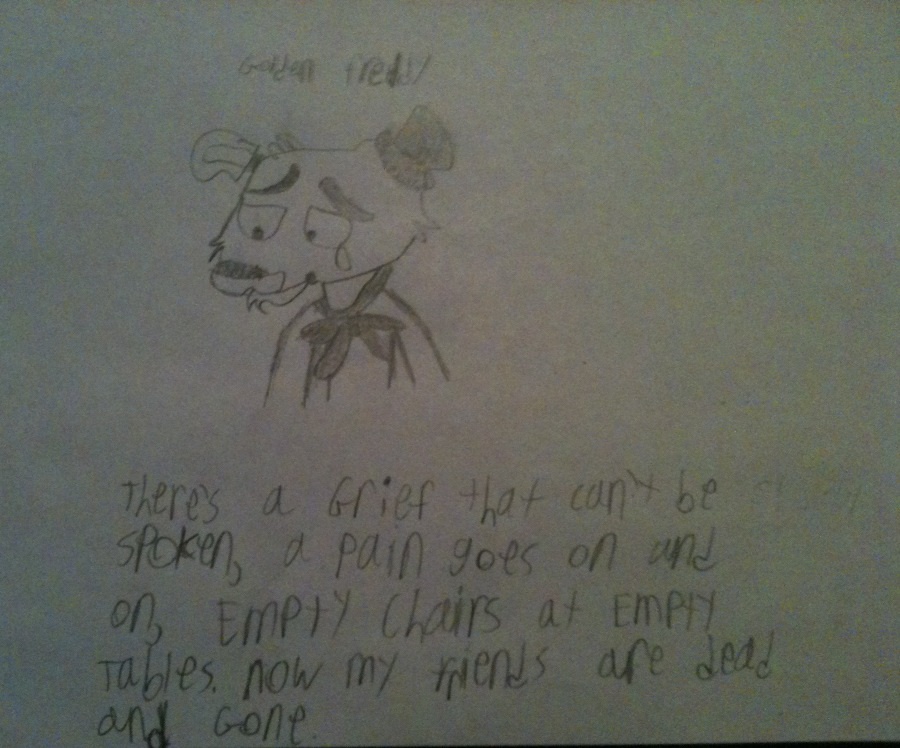 Golden Freddy
There's a Grief that can't be
spoken, a pain goes on and
on, Empty Chairs at Empty
Tables. now my friends are dead
and Gone.